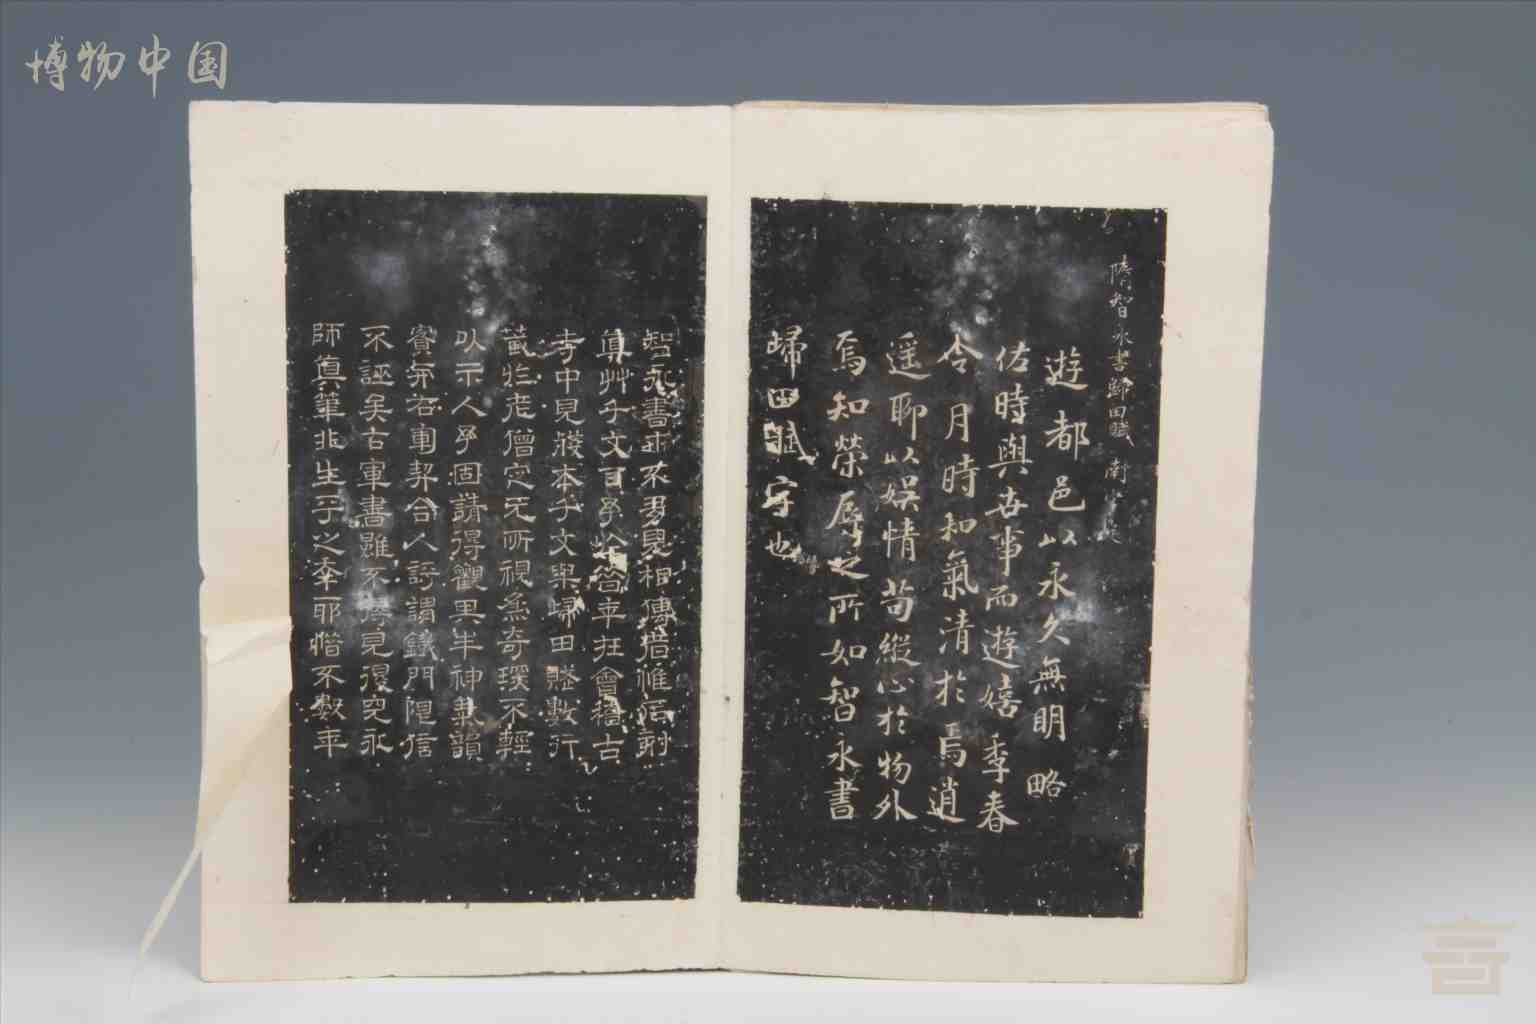 博物中国
隋智永書歸田賦
遊都邑以永久無明略
佐時與世事而遊嬉季春
令月時和氣清於焉逍
遥聊以娱情苟縱心於物外
焉知榮辱之所如智永書
歸田賦字也
智永書世不多見相傳惟
真艸千文耳予於答年在會稽古
寺中見殘本千文與歸田賦數行
藏於老僧定无所視為奇環不輕
以示人予固請得觀里半神氣韻
不誣矣右軍書雖不得見得見永
師真筆非生平之幸耶惜不數年